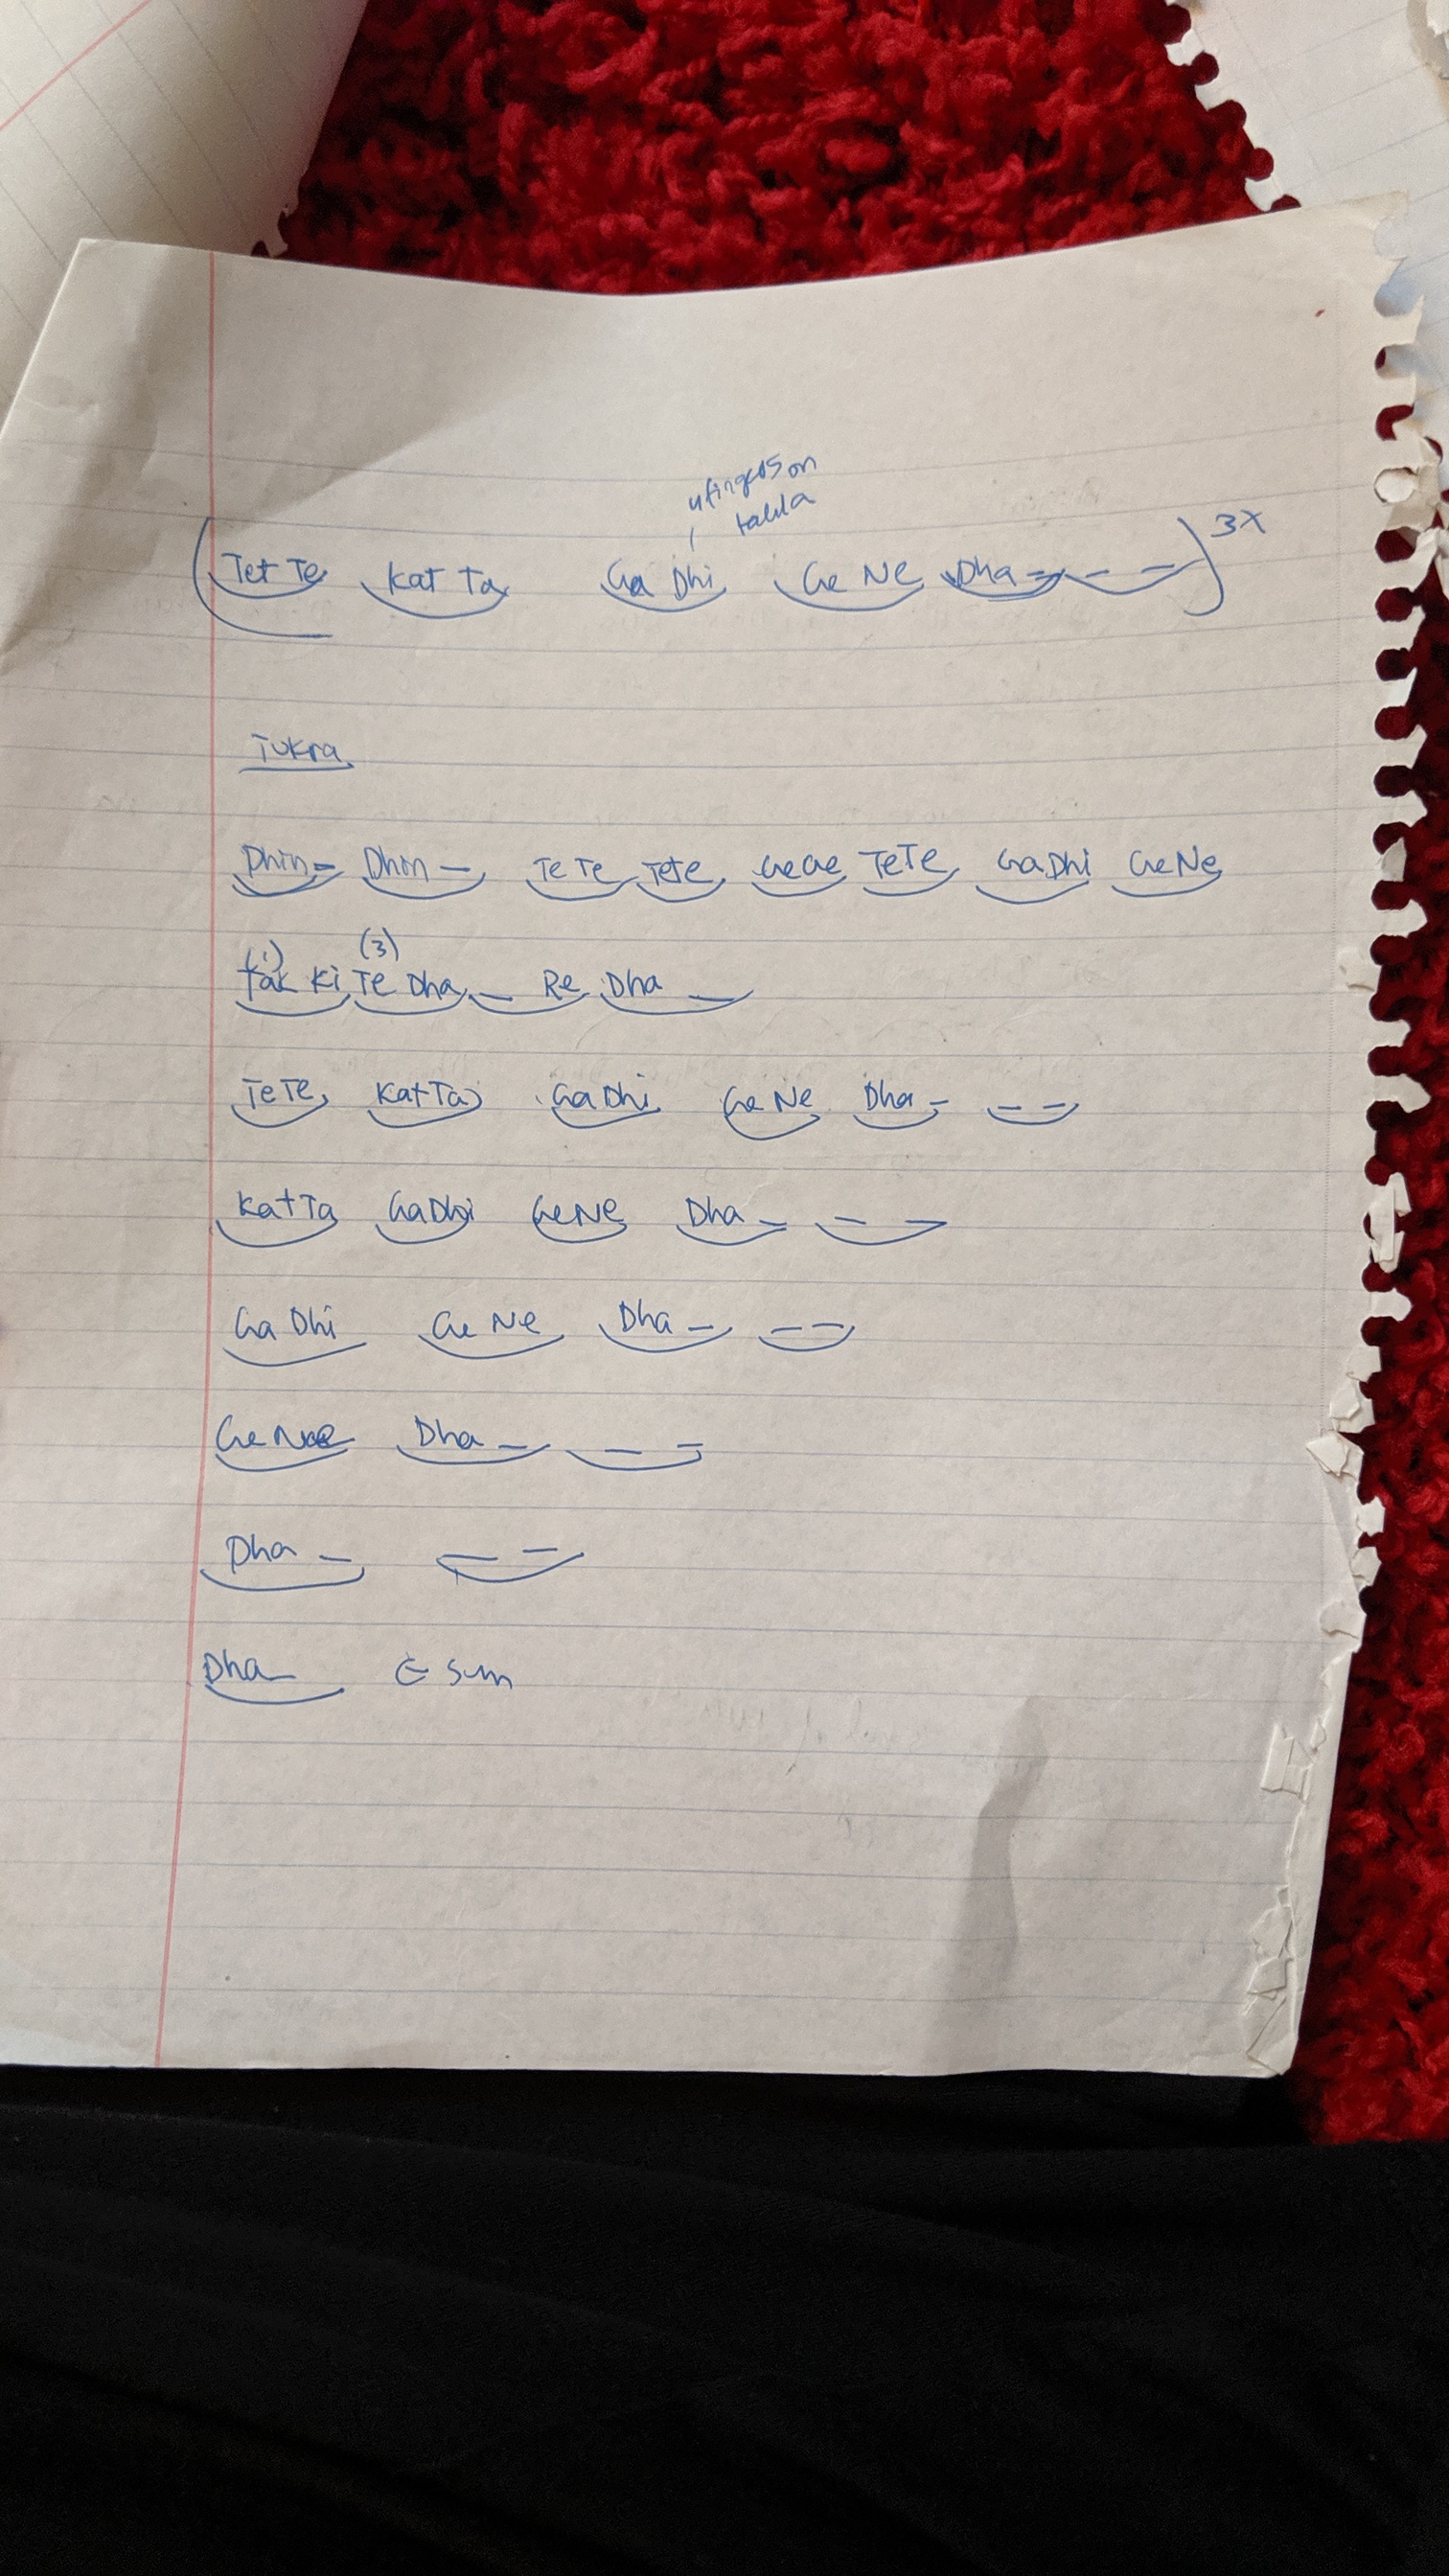 4 fingers on
tabla
(Tet Te Kat Ta Ga Dhi Ge Ne Dha - - -) 3X
Tukra
Dhin - Dhin - Te Te TeTe GeGe TeTe GaDhi GeNe
(1) (3)
Tak Ki Te Dha - Re Dha -
TeTe KatTa GaDhi Ge Ne Dha - - -
KatTa GaDhi GeNe Dha - - -
Ga Dhi Ge Ne Dha - - -
Ge Ne Dha - - -
Dha - - -
Dha ← sum